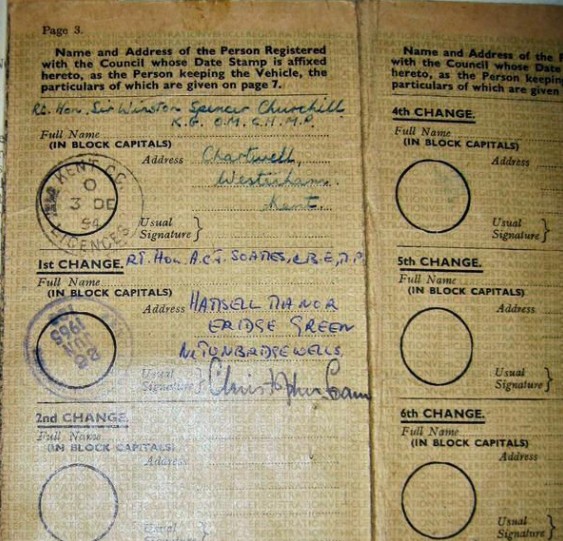 Page 3.
Name and Address of the Person Registered
with the Council whose Date Stamp is affixed
hereto, as the Person keeping the Vehicle, the
particulars of which are given on page 7.
Rt. Hon. Sir Winston Spencer Churchill
K.G. O.M. C.H. M.P.
Full Name
(IN BLOCK CAPITALS)
Address Chartwell,
Westerham.
Kent.
KENT C.C.
3 DE
54
LICENCES
Usual
Signature
1st CHANGE. RT. HON. A.C.J. SOAMES, C.B.E, M.P.
Full Name
(IN BLOCK CAPITALS)
Address HAMSELL MANOR
ERIDGE GREEN
Nr TUNBRIDGE WELLS,
1965
Usual
Signature Christopher Soames
2nd CHANGE.
Full Name
(IN BLOCK CAPITALS)
Address
Usual
Signature
Name and Address of the
with the Council whose Date
hereto, as the Person keeping
particulars of which are given
4th CHANGE.
Full Name
(IN BLOCK CAPITALS)
Address
Usual
Signature
5th CHANGE.
Full Name
(IN BLOCK CAPITALS)
Address
Usual
Signature
6th CHANGE.
Full Name
(IN BLOCK CAPITALS)
Address
Usual
Signature